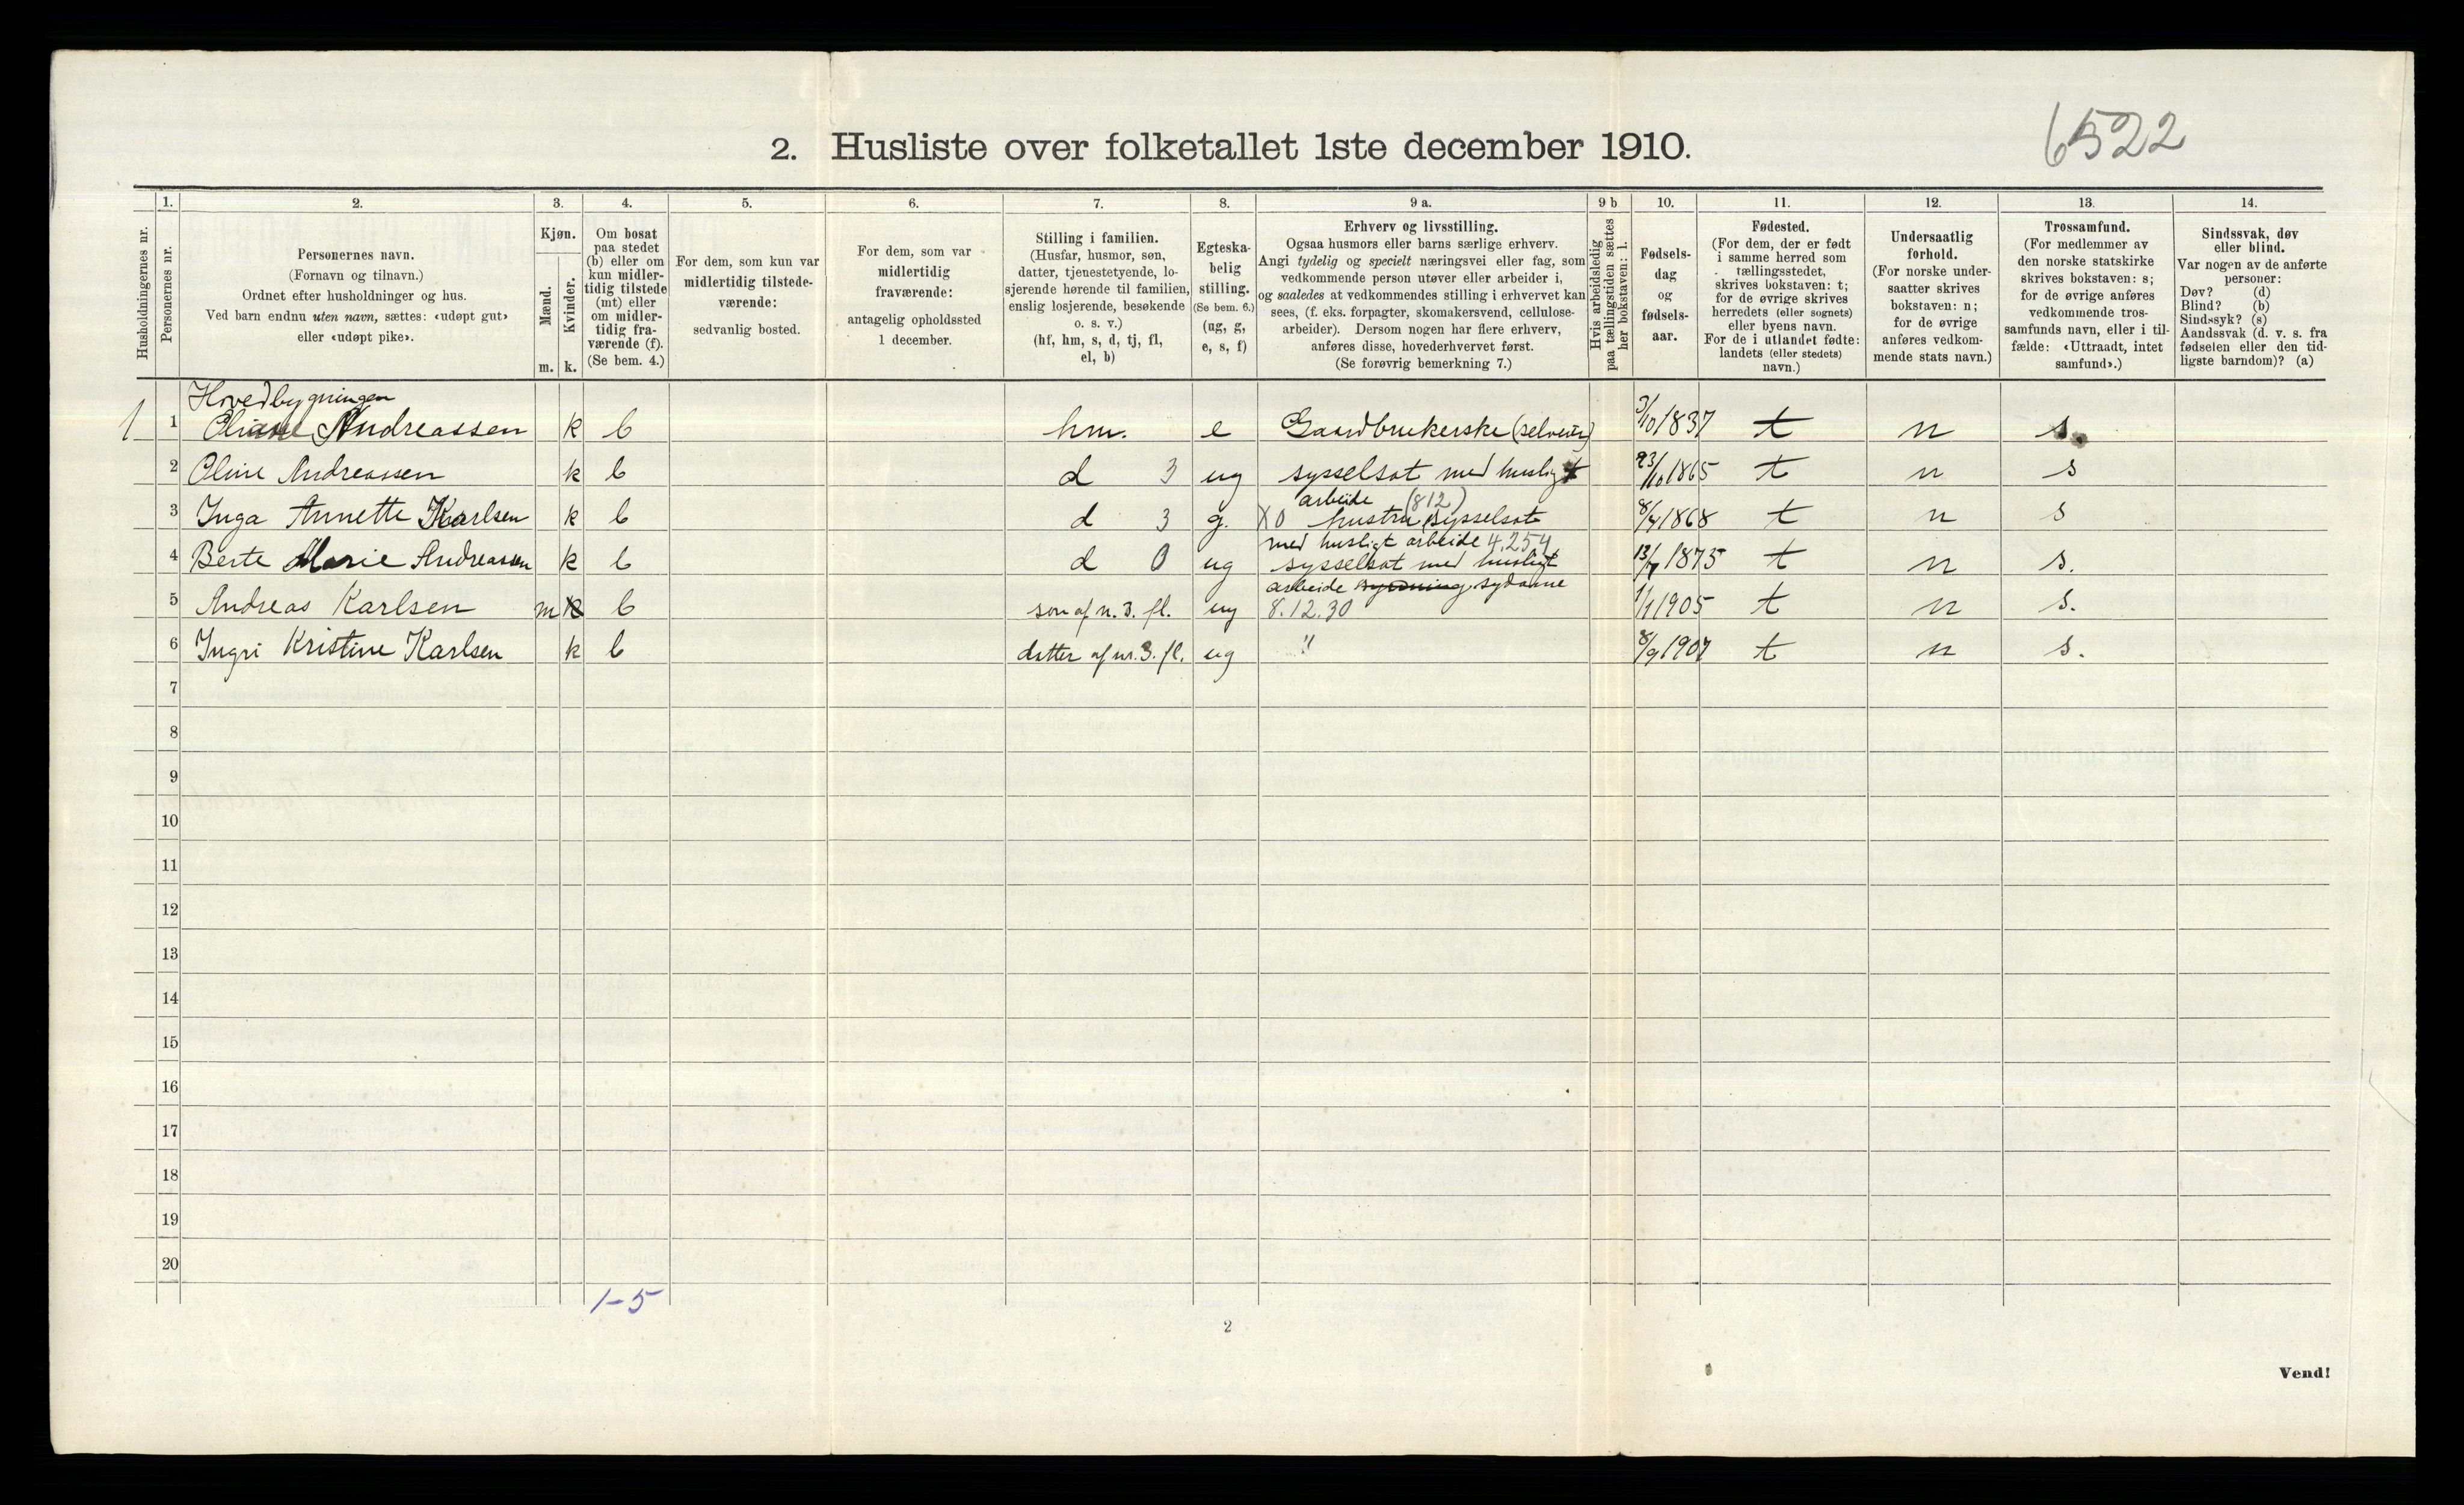 6522
2. Husliste over folketallet 1ste december 1910.
Husholdningernes nr.
1.
Personernes nr.
2.
Personernes navn.
(Fornavn og tilnavn.)
Ordnet efter husholdninger og hus.
Ved barn endnu uten navn, sættes: «udøpt gut»
eller «udøpt pike».
3.
Kjøn.
Mænd.
Kvinder.
m. k.
4.
Om bosat
paa stedet
(b) eller om
kun midler-
tidig tilstede
(mt) eller
om midler-
tidig fra-
værende (f).
(Se bem. 4.)
5.
For dem, som kun var
midlertidig tilstede-
værende:
sedvanlig bosted.
6.
For dem, som var
midlertidig
fraværende:
antagelig opholdssted
1 december.
7.
Stilling i familien.
(Husfar, husmor, søn,
datter, tjenestetyende, lo-
sjerende hørende til familien,
enslig losjerende, besøkende
o. s. v.)
(hf, hm, s, d, tj, fl,
el, b)
8.
Egteska-
belig
stilling.
(Se bem. 6.)
(ug, g,
e, s, f)
9 a.
Erhverv og livsstilling.
Ogsaa husmors eller barns særlige erhverv.
Angi tydelig og specielt næringsvei eller fag, som
vedkommende person utøver eller arbeider i,
og saaledes at vedkommendes stilling i erhvervet kan
sees, (f. eks. forpagter, skomakersvend, cellulose-
arbeider). Dersom nogen har flere erhverv,
anføres disse, hovederhvervet først.
(Se forøvrig bemerkning 7.)
9 b
Hvis arbeidsledig
paa tællingstiden sættes
her bokstaven: l.
10.
Fødsels-
dag
og
fødsels-
aar.
11.
Fødested.
(For dem, der er født
i samme herred som
tællingsstedet,
skrives bokstaven: t;
for de øvrige skrives
herredets (eller sognets)
eller byens navn.
For de i utlandet fødte:
landets (eller stedets)
navn.)
12.
Undersaatlig
forhold.
(For norske under-
saatter skrives
bokstaven: n;
for de øvrige
anføres vedkom-
mende stats navn.)
13.
Trossamfund.
(For medlemmer av
den norske statskirke
skrives bokstaven: s;
for de øvrige anføres
vedkommende tros-
samfunds navn, eller i til-
fælde: «Uttraadt, intet
samfund».)
14.
Sindssvak, døv
eller blind.
Var nogen av de anførte
personer:
Døv? (d)
Blind? (b)
Sindssyk? (s)
Aandssvak (d. v. s. fra
fødselen eller den tid-
ligste barndom)? (a)
Hovedbygningen
1 1 Andreassen k b hm. e Gaardbrukerske (selveier) 3/10 1837 t n s.
2 Oline Andreassen k b d 3 ug sysselsat med husligt 23/10 1865 t n s
arbeide (812)
3 Inga Annette Karlsen k b d 3 g. X0 hustru sysselsat 8/4 1868 t n s
med husligt arbeide 4.254
4 Berte Marie Andreassen k b d 0 ug sysselsat med husligt 1873 t n s.
arbeide sydame
5 Andreas Karlsen m k b søn af n. 3. fl. ug 8.12.30 1/1 1905 t n s.
6 Ingri Kristine Karlsen k b datter af nr. 3. fl. ug " 8/9 1907 t n s.
7
8
9
10
11
12
13
14
15
16
17
18
19
20
1-5
2
Vend!